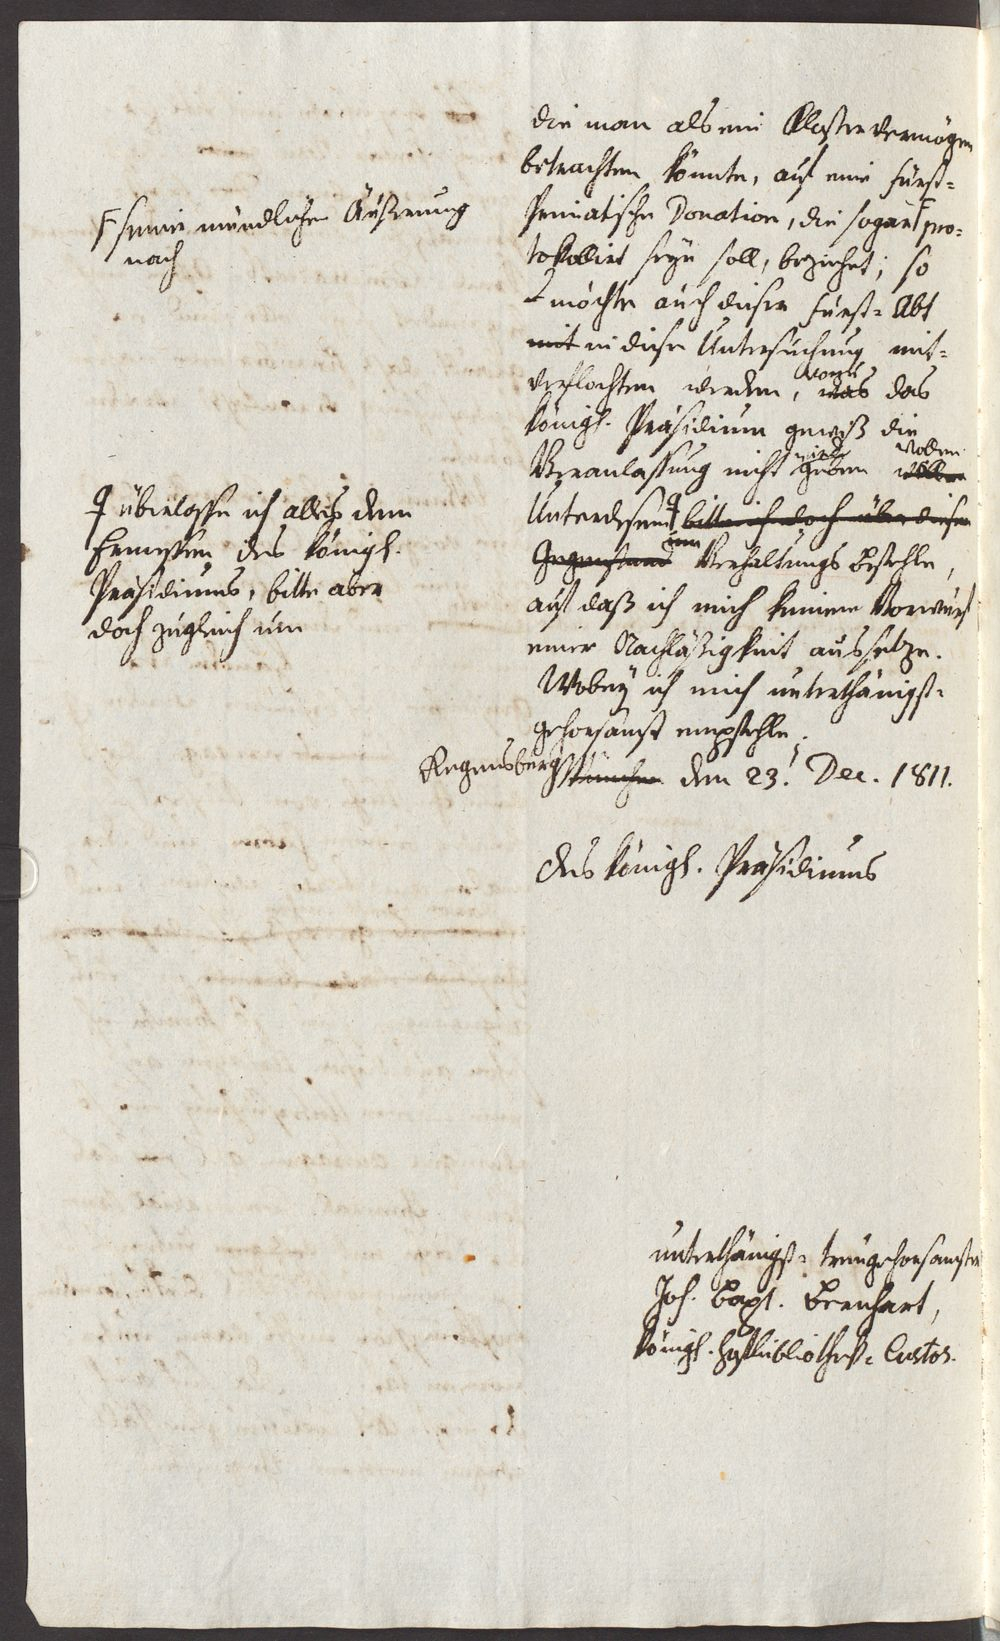 die man als ein Klostervermögen
betrachten könnte, auf eine Fürst-
Primatische Donation, die sogar pro-
tokollirt seyn soll, beziehet; so
möchte auch dieser Fürst-Abt
mit in diese Untersuchung mit-
verflochten werden, was wozu das
königl. Präsidium gewiß die
Veranlassung nicht geben wird wollen
Unterdessen bitte ich doch über diesen
Gegenstand um Verhaltungs Befehle,
auf daß ich mich keinem Vorwurf
einer Nachläßigkeit aussetze.
Wobey ich mich unterthänigst-
gehorsamst empfehle.
Regensburg München den 23. Dec. 1811.
des königl. Präsidiums
F seiner mündlichen Äußerung
nach
überlasse ich alles dem
Ermessen des königl.
Präsidiums, bitte aber
doch zugleich um
unterthänigst-treugehorsamster
Joh. Bapt. Bernhart,
königl. Hofbibliothek-Custos.